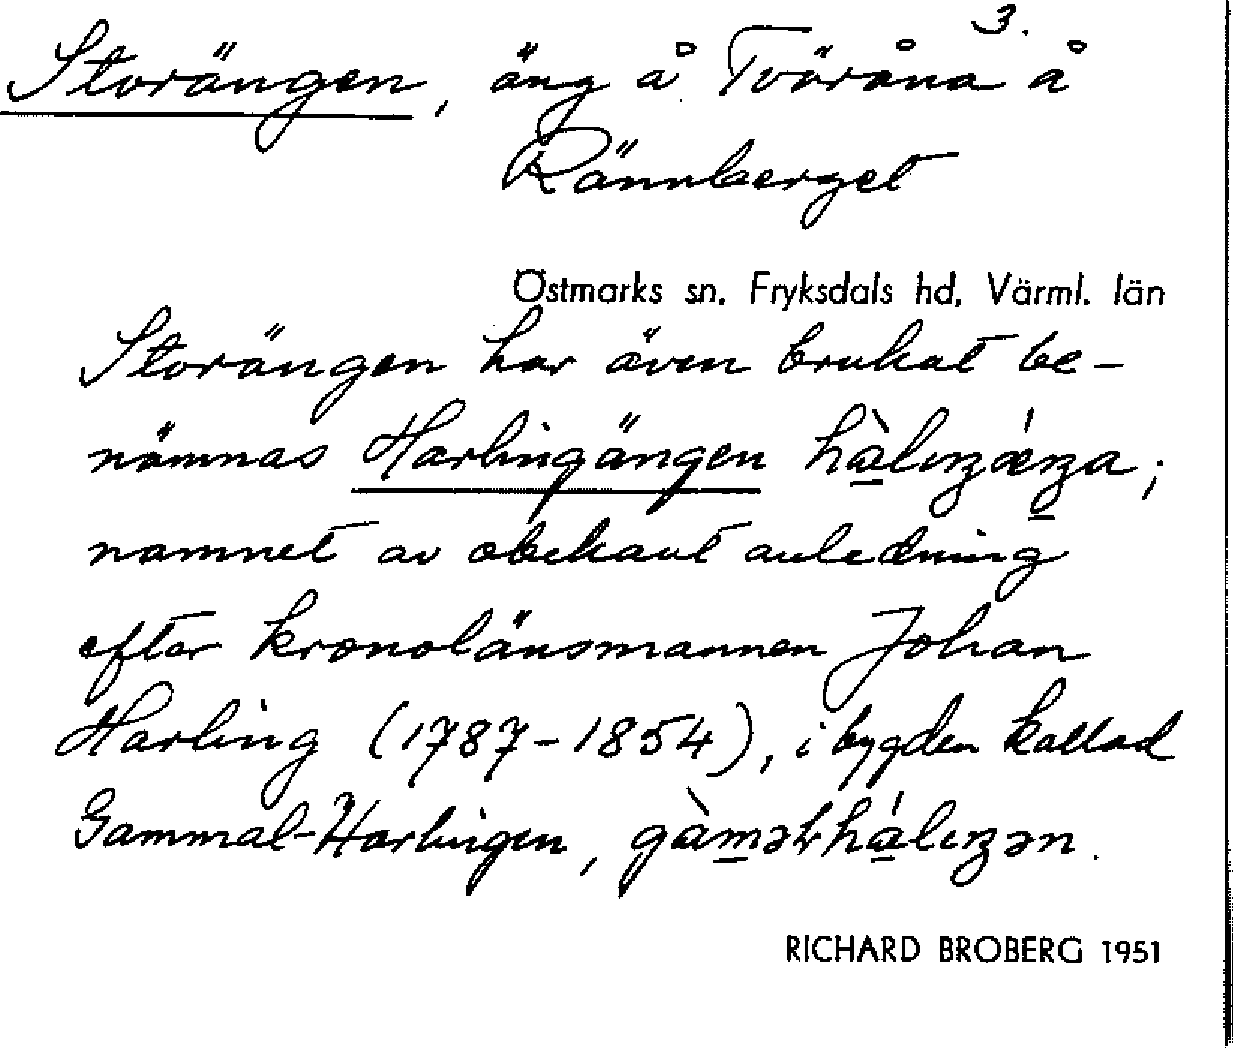 3.
Storängen, äng å Tvöråna å
Rännberget
Östmarks sn. Fryksdals hd. Värml. län
Storängen har även brukat be-
nämnas Harlingängen hàlıŋǽŋa;
namnet av obekant anledning
efter kronolänsmannen Johan
Harling (1787-1854), i bygden kallad
Gammal-Harlingen, gàməɫhálıŋən.
RICHARD BROBERG 1951